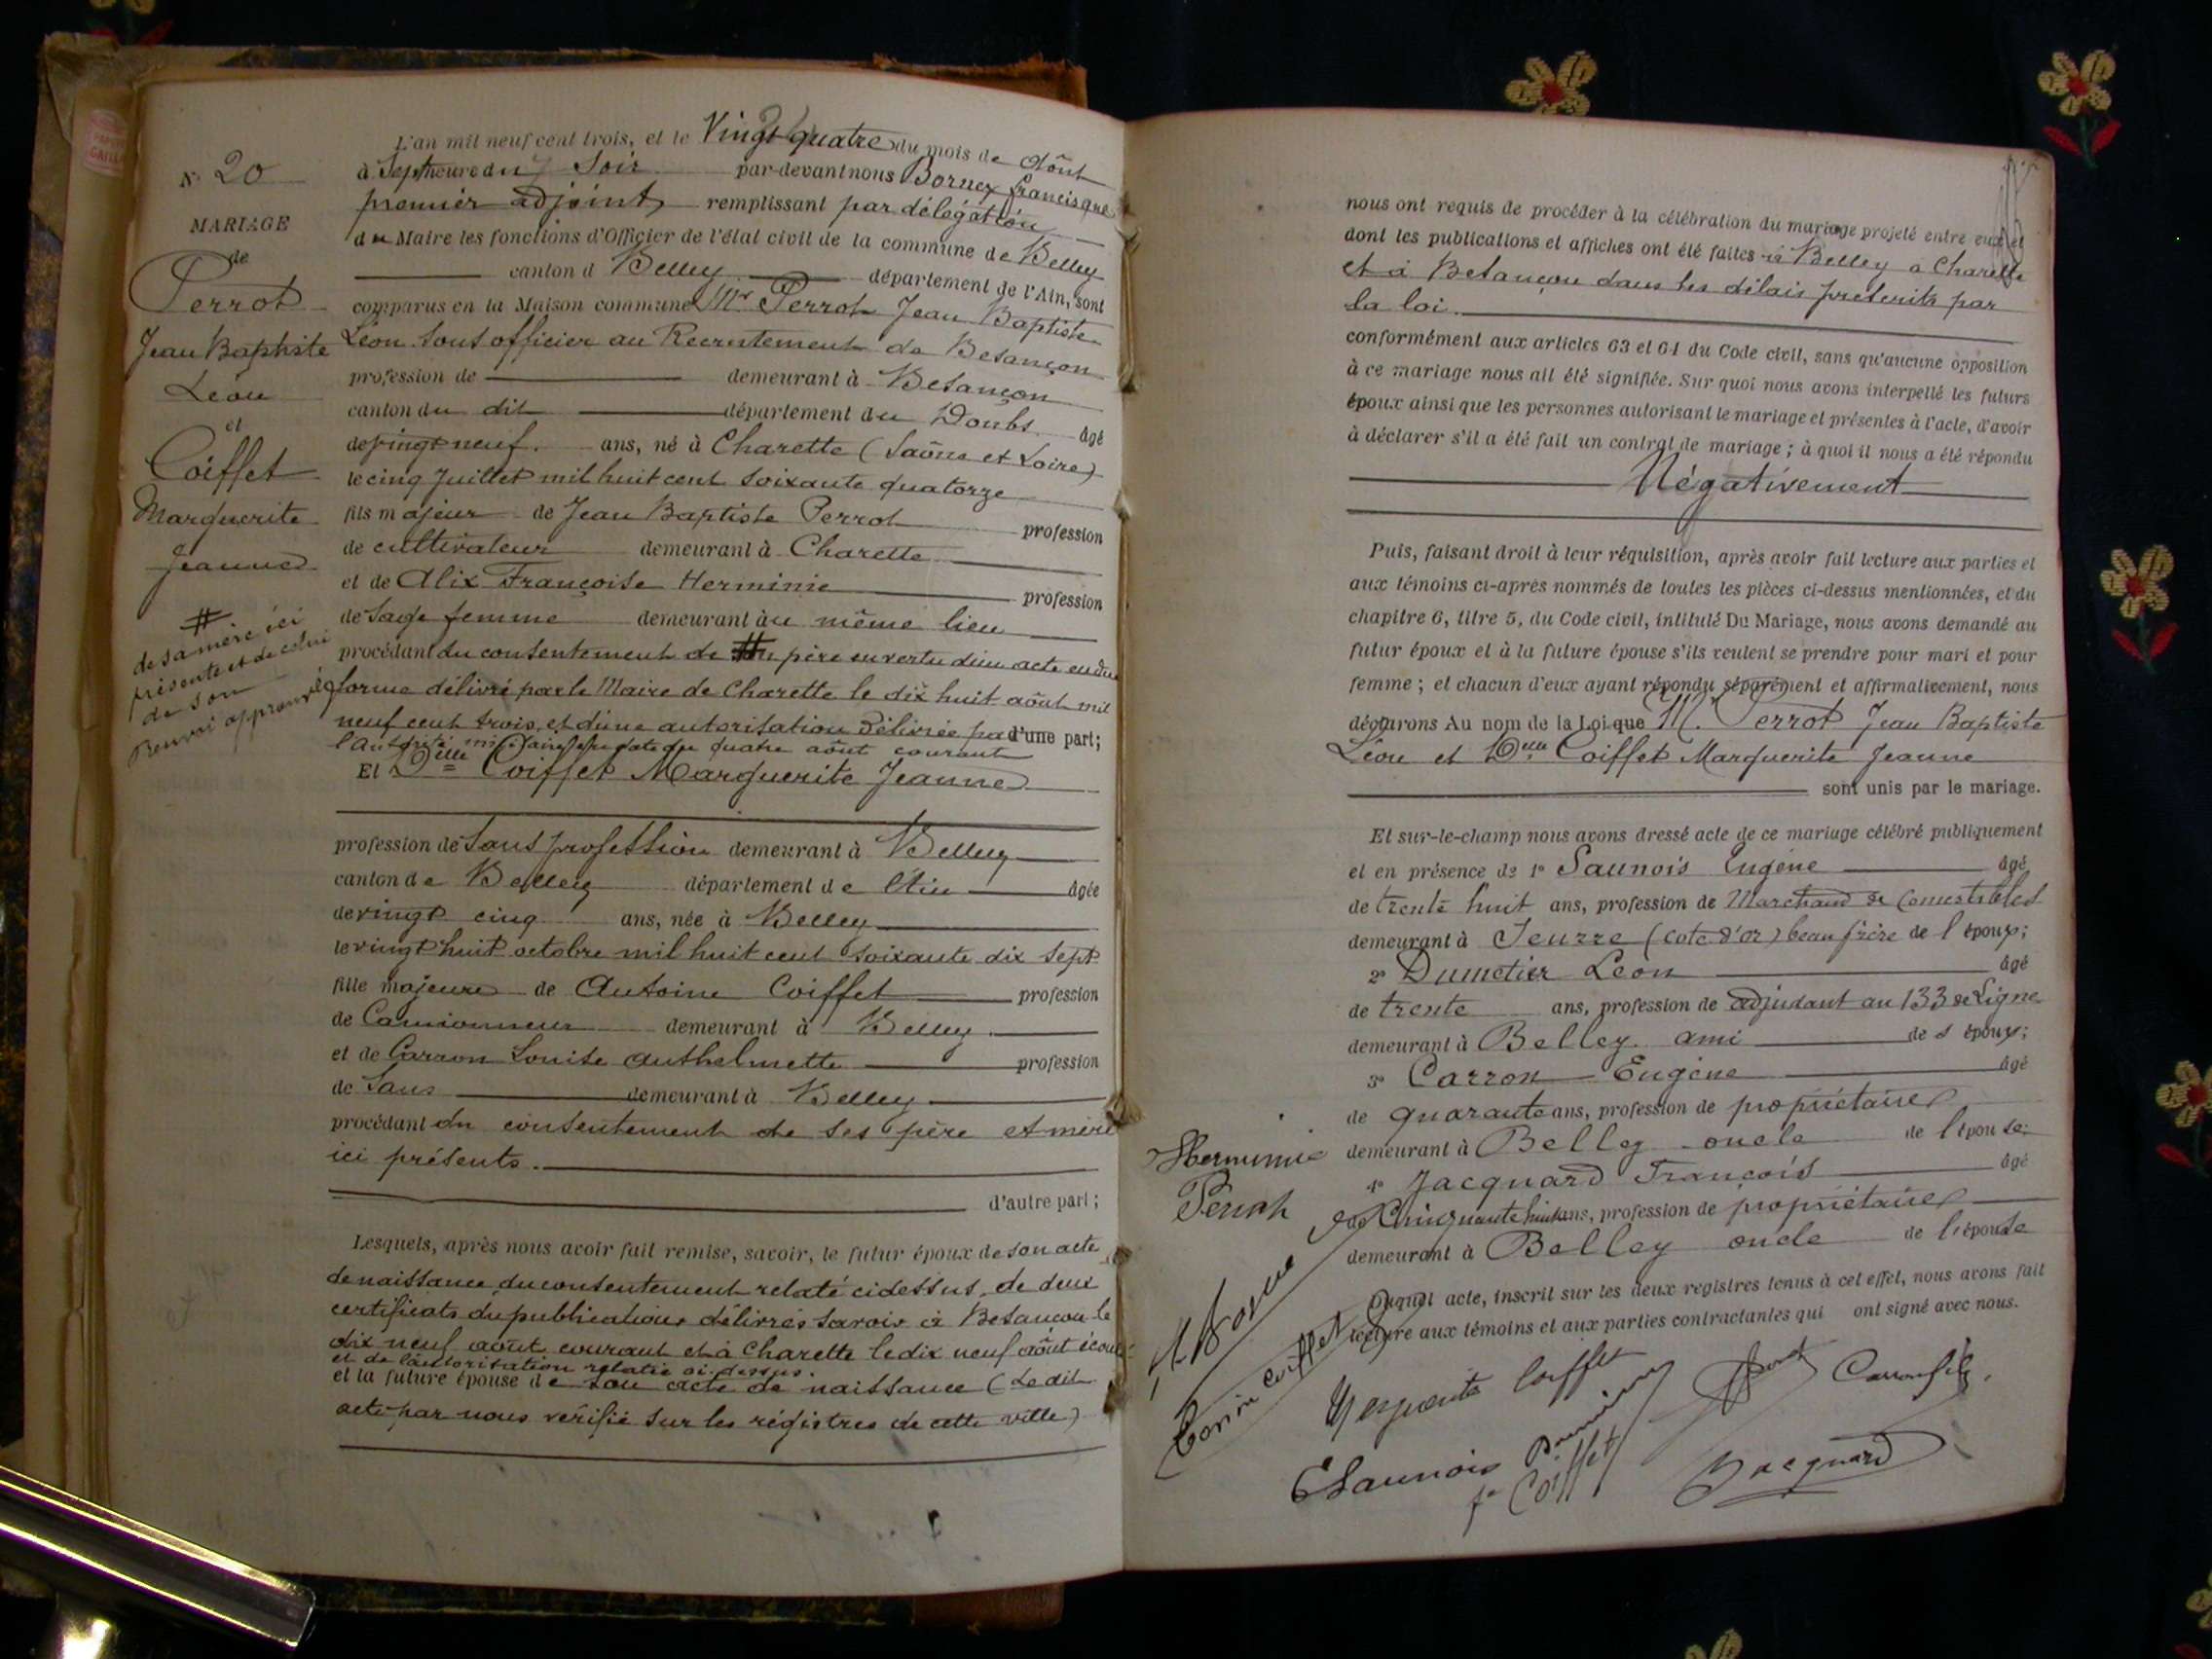 N° 20
MARIAGE
de
Perrot
Jean Baptiste
Léon
et
Coiffet
Marguerite
Jeanne
#
de sa mère ici
présente et de celui
de son
Renvoi approuvé
L'an mil neuf cent trois, et le Vingt quatre du mois de Août
à Sept heure du Soir par-devant nous Bornex francisque
premier adjoint remplissant par délégation
du Maire les fonctions d'Officier de l'état civil de la commune de Belley
canton d Belley département de l'Ain, sont
comparus en la Maison commune Mr Perrot Jean Baptiste
Léon Sous officier au Recrutement de Besançon
profession de demeurant à Besançon
canton du dit département du Doubs âgé
de vingt neuf. ans, né à Charette (Saône et Loire)
le cinq Juillet mil huit cent soixante quatorze
fils majeur de Jean Baptiste Perrot profession
de cultivateur demeurant à Charette
et de Alix Françoise Herminie profession
de Sage femme demeurant au même lieu
procédant du consentement de # père en vertu d'un acte en due
forme délivré par le Maire de Charette le dix huit août mil
neuf cent trois, et d'une autorisation délivrée par d'une part;
l'Autorité militaire en date du quatre août courant
Et Delle Coiffet Marguerite Jeanne
profession de Sans profession demeurant à Belley
canton de Belley département de l'Ain âgée
de vingt cinq ans, née à Belley
le vingt huit octobre mil huit cent soixante dix sept
fille majeure de Antoine Coiffet profession
de Camionneur demeurant à Belley
et de Carron Louise Anthelmette profession
de Sans demeurant à Belley
procédant du consentement de ses père et mère
ici présents.
d'autre part;
Lesquels, après nous avoir fait remise, savoir, le futur époux de son acte
de naissance, du consentement relaté ci dessus, de deux
certificats de publications délivrés savoir à Besançon le
dix neuf août courant et à Charette le dix neuf août
et de l'autorisation relatée ci-dessus.
et la future épouse de son acte de naissance (Le dit
acte par nous vérifié sur les régistres de cette ville)
nous ont requis de procéder à la célébration du mariage projeté entre eux et
dont les publications et affiches ont été faites à Belley à Charette
et à Besançon dans les délais prescrits par
la loi.
conformément aux articles 63 et 64 du Code civil, sans qu'aucune opposition
à ce mariage nous ait été signifiée. Sur quoi nous avons interpellé les futurs
époux ainsi que les personnes autorisant le mariage et présentes à l'acte, d'avoir
à déclarer s'il a été fait un contrat de mariage; à quoi il nous a été répondu
Négativement
Puis, faisant droit à leur réquisition, après avoir fait lecture aux parties et
aux témoins ci-après nommés de toutes les pièces ci-dessus mentionnées, et du
chapitre 6, titre 5, du Code civil, intitulé Du Mariage, nous avons demandé au
futur époux et à la future épouse s'ils veulent se prendre pour mari et pour
femme; et chacun d'eux ayant répondu séparément et affirmativement, nous
déclarons Au nom de la Loi que Mr. Perrot Jean Baptiste
Léon et Delle Coiffet Marguerite Jeanne
sont unis par le mariage.
Et sur-le-champ nous avons dressé acte de ce mariage célébré publiquement
et en présence de 1° Saunois Eugène âgé
de trente huit ans, profession de Marchand de Comestibles
demeurant à Seurre (cote d'or) beau frère de l'époux;
2° Dumetier Léon âgé
de trente ans, profession de adjudant au 133 de Ligne
demeurant à Belley ami de l époux;
3° Carron Eugène âgé
de quarante ans, profession de propriétaire
demeurant à Belley oncle de l'épouse;
4° Jacquard François âgé
de Cinquante huit ans, profession de propriétaire
demeurant à Belley oncle de l'épouse
Duquel acte, inscrit sur les deux registres tenus à cet effet, nous avons fait
lecture aux témoins et aux parties contractantes qui ont signé avec nous.
Herminie
Perrot
Marguerite Coiffet
Carron
ESaunois
Coiffet
Jacquard